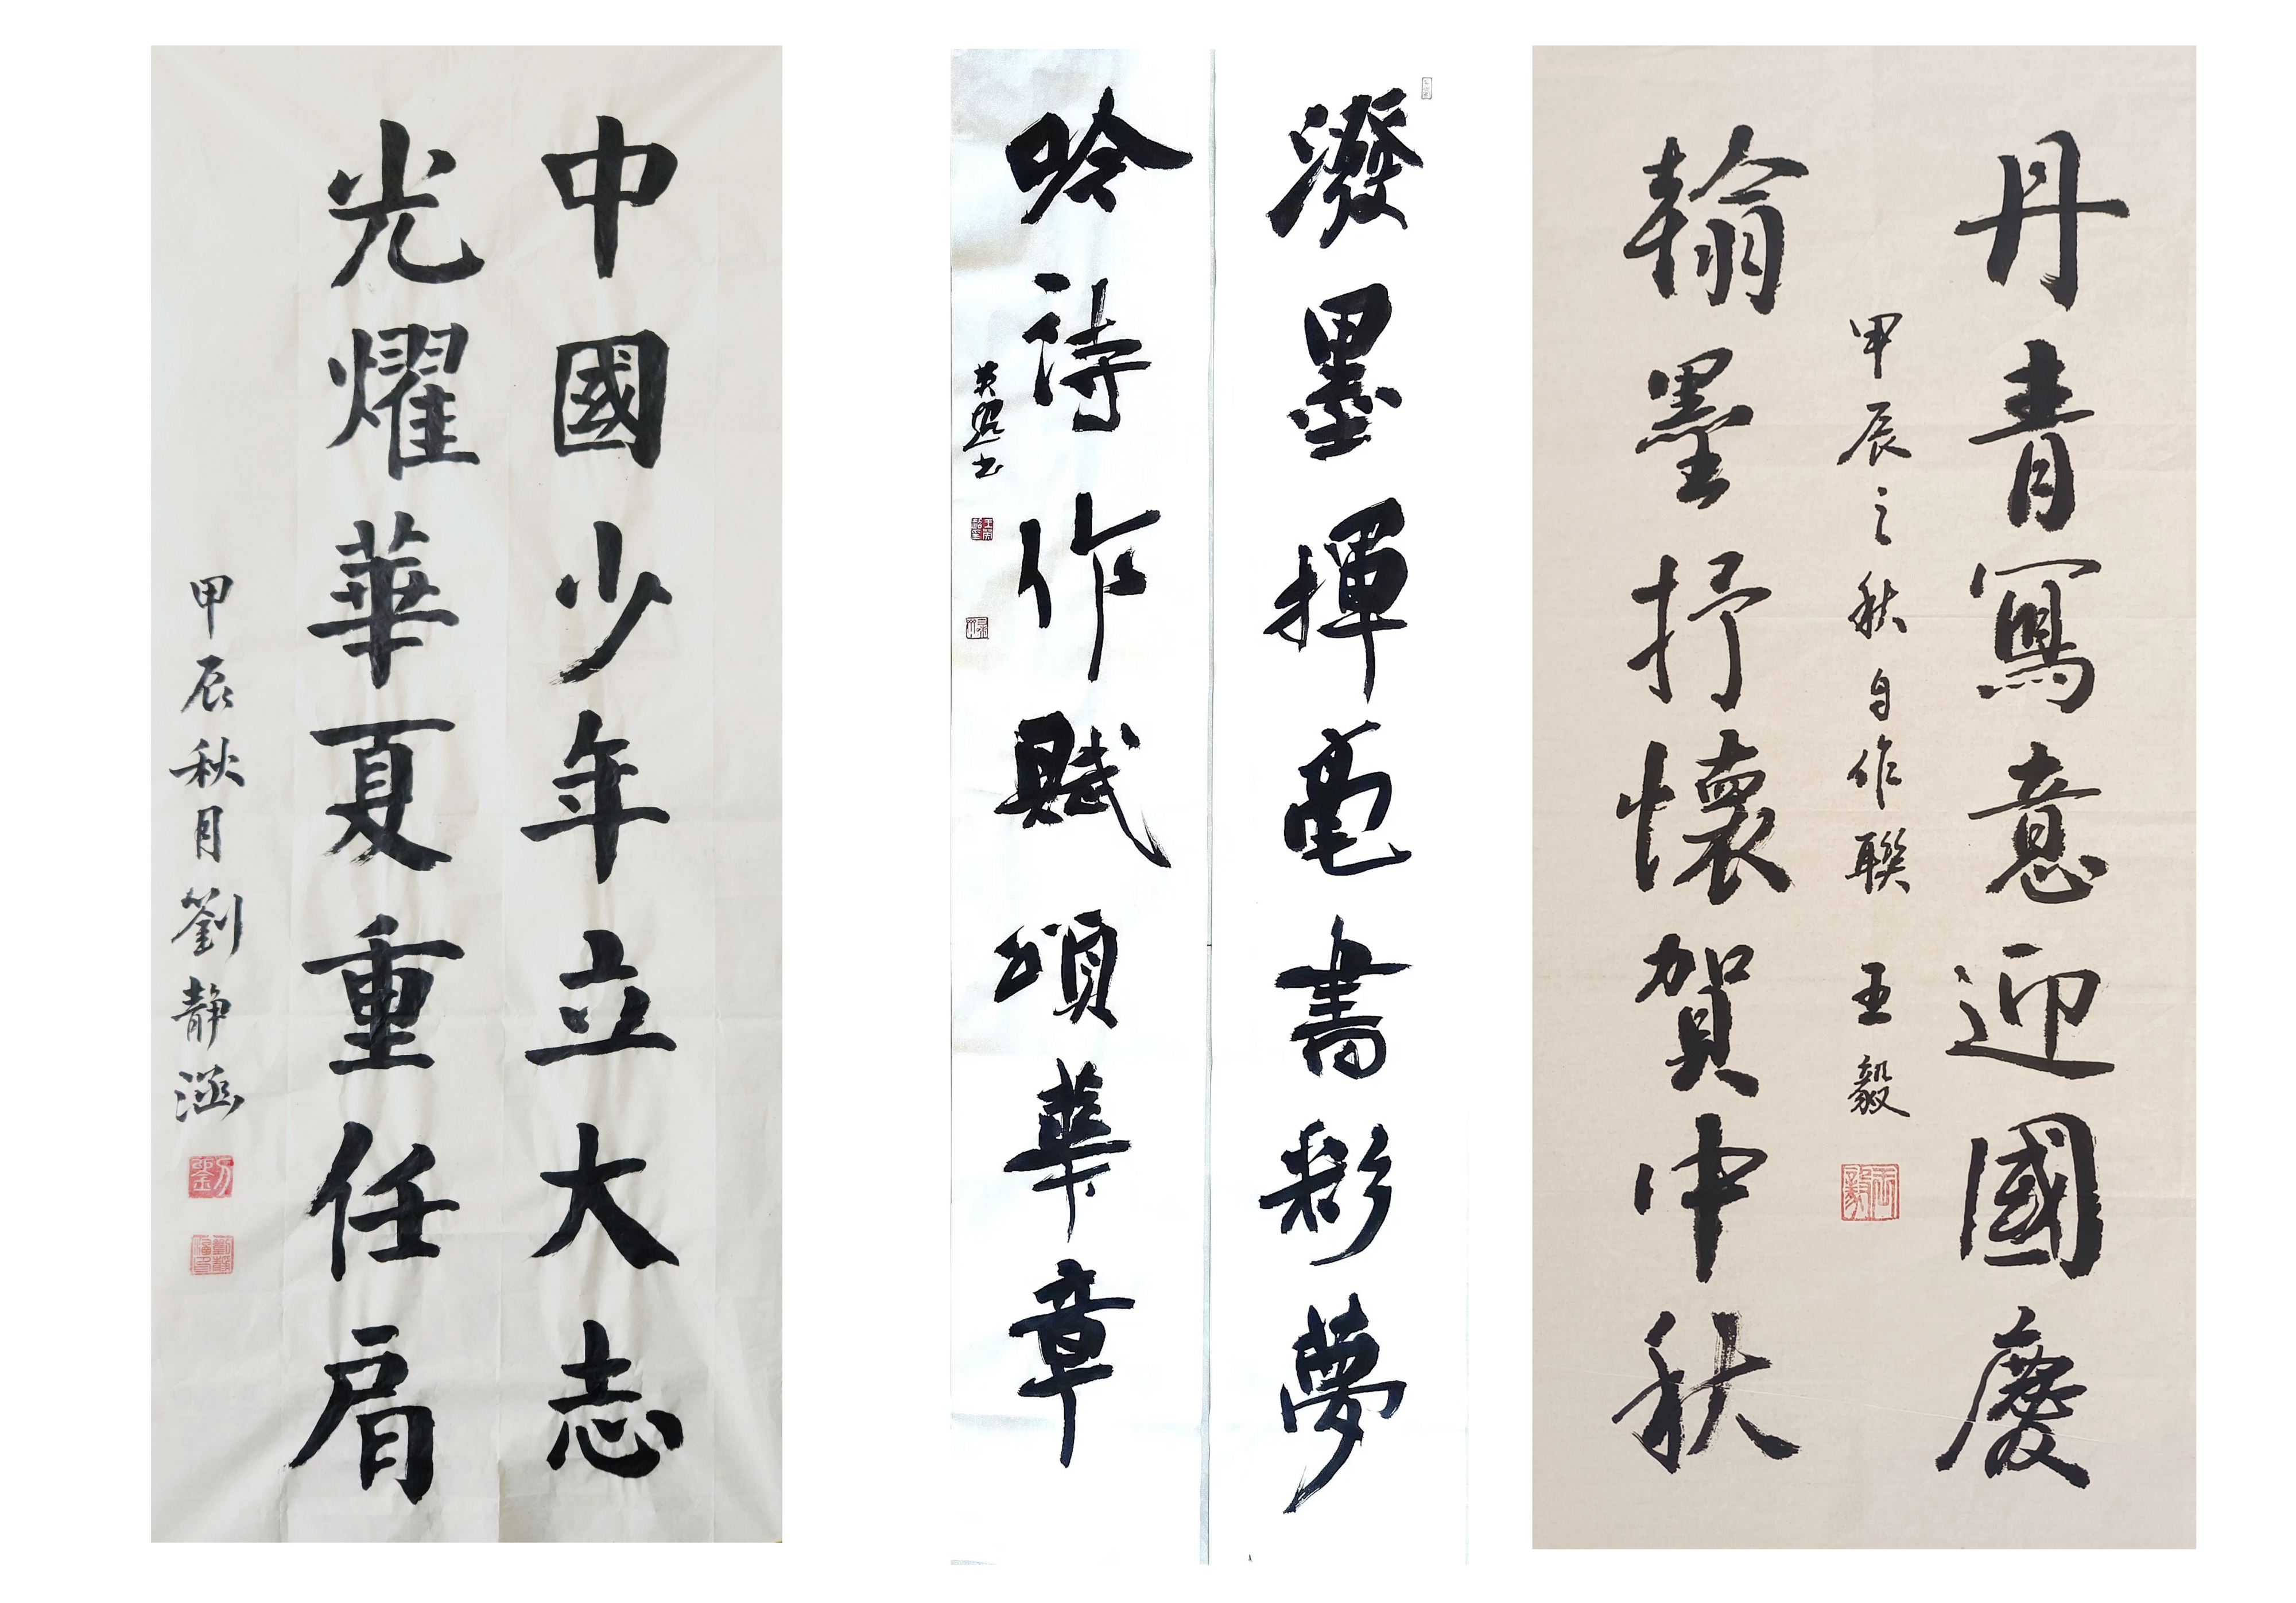 丹青寫意迎國慶
甲辰之秋自作聯 王毅
翰墨抒懷賀中秋
潑墨揮毫書彩夢
吟詩作賦頌華章
中國少年立大志
光耀華夏重任肩
甲辰秋月劉靜涵